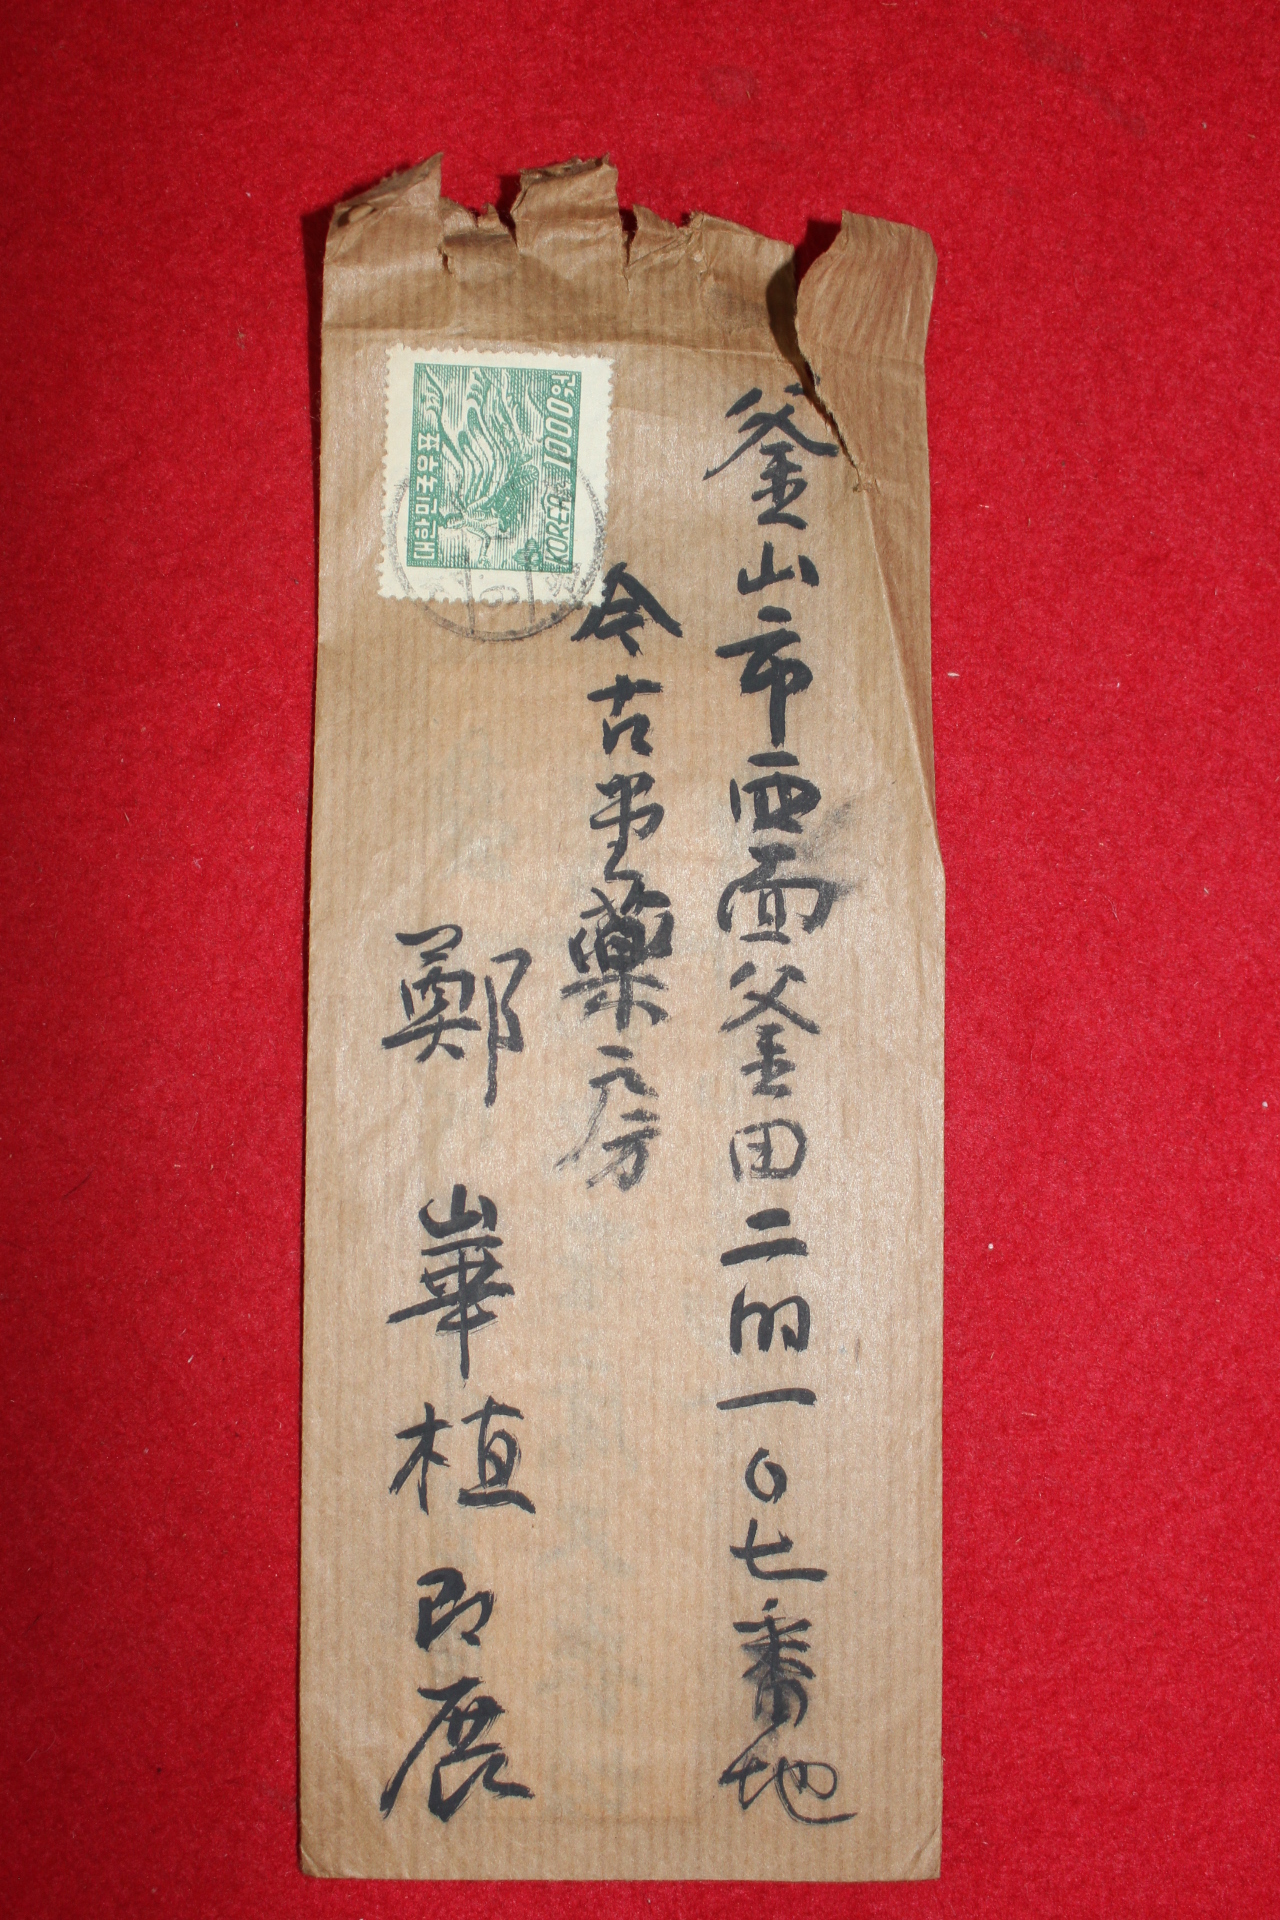 釜山市西面釜田二的一〇七番地
今古堂藥房
鄭 崋植 即展
1000원
KOREA
대한민국우표